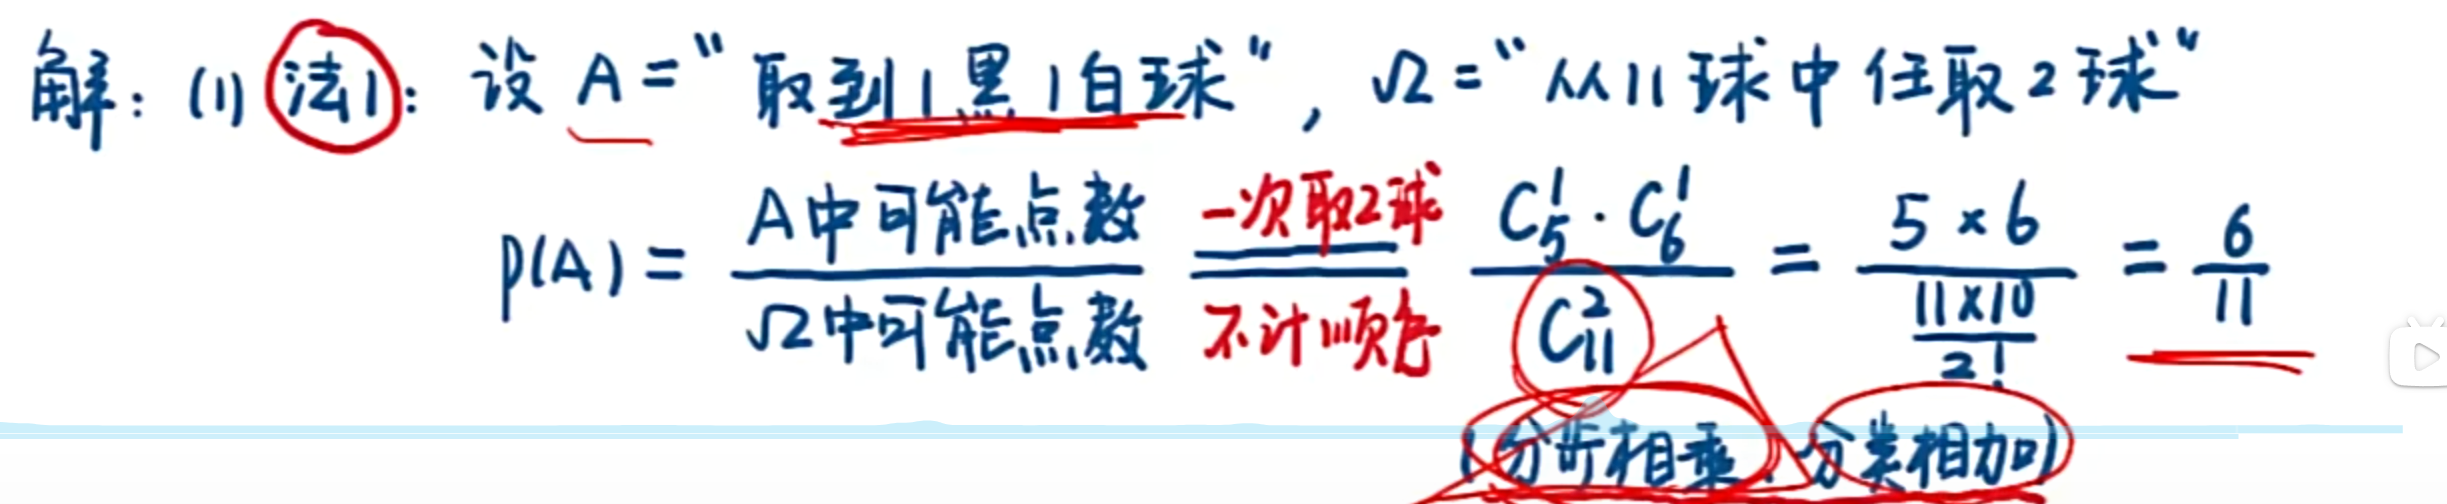 解：(1) 法1：设 A="取到1黑1白球"，Ω="从11球中任取2球"
P(A) = A中可能点数 / Ω中可能点数 = 一次取2球 不计顺序 C₅¹·C₆¹ / C₁₁² = 5×6 / (11×10 / 2!) = 6/11
(分步相乘，分类相加)